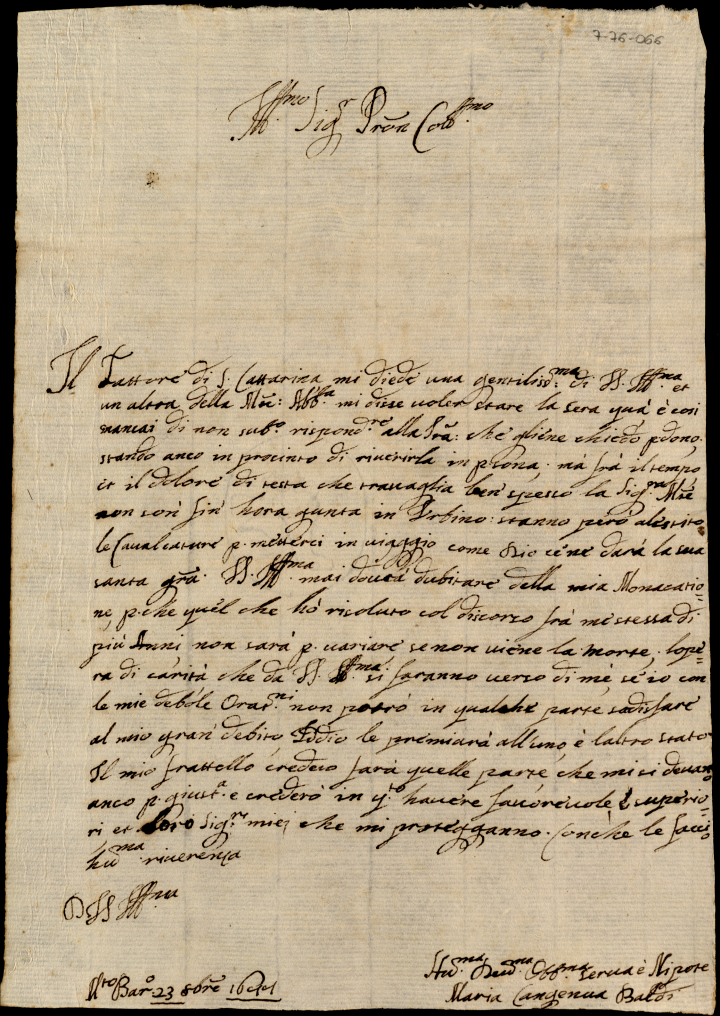 7-76-066
Ill.mo Sig.r Pron Coll.mo
Il Fattore di S. Cattarina mi diede una gentiliss.ma di VS. Ill.ma et
un altra della Mre: Abb.a mi disse voler stare la sera quà è così
mancai di non sub.o rispond.re alla Pra: che gliene chiedo pdono.
stando anco in procinto di riverirla in psona. mà frà il tempo
et il dolore di testa che travaglia ben spesso la Sig.ra Mre
non son fin hora gunta in Urbino: stanno però alestite
le Cavalcature p. metterci in viaggio come Dio ce ne darà la sua
santa gra. VS. Ill.ma mai dovrà dubitare della mia Monacatio=
ne, pche quel che hò risoluto col discorso frà me stessa di
più Anni non sarà p. variare se non viene la morte. l'ope=
ra di carità che da VS. Ill.ma si faranno verso di mè, se io con
le mie debole Orat.ni non potrò in qualche parte sodisfare
al mio gran debito Iddio le premiarà all uno, è laltro stato
Il mio frattello credevo farà quelle parte che mi si devano
anco p. giust.a e crederò in q.to havere favorevole è superio=
ri et loro Sig.ri miei che mi protegganno. Con che le faccio
hu.ma riverenza
D VS Ill.ma
Mto Baro. 23 8bre 1641
Hu.ma Deu.ma Obb.ma serva è Nipote
Maria Cangenua Baldi